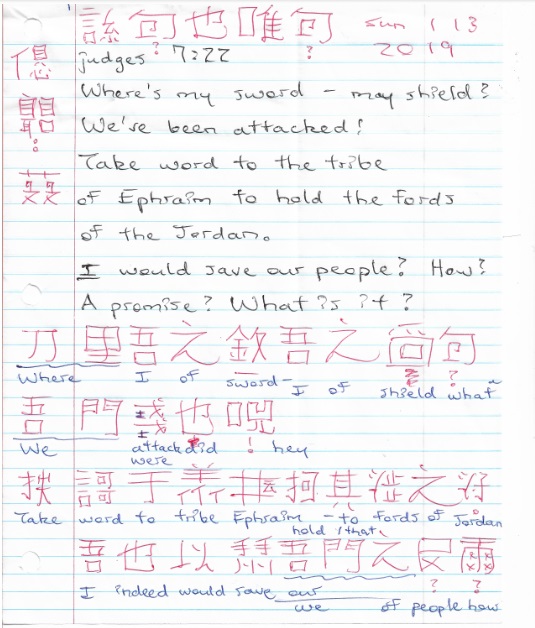 句也唯句 Sun 1 13
? ? 2019
Judges 7:22
Where's my sword – may shield?
We've been attacked!
Take word to the tribe
of Ephraim to hold the fords
of the Jordan.
I would save our people? How?
A promise? What is it?
刀里吾之欽吾之句
Where I of sword – I of shield what
吾門也
We attacked did ! hey
were
謌于柯其之
Take word to tribe Ephraim – to fords of Jordan
hold / that
吾也以吾門之爾
I indeed would save our ? ?
we of people how